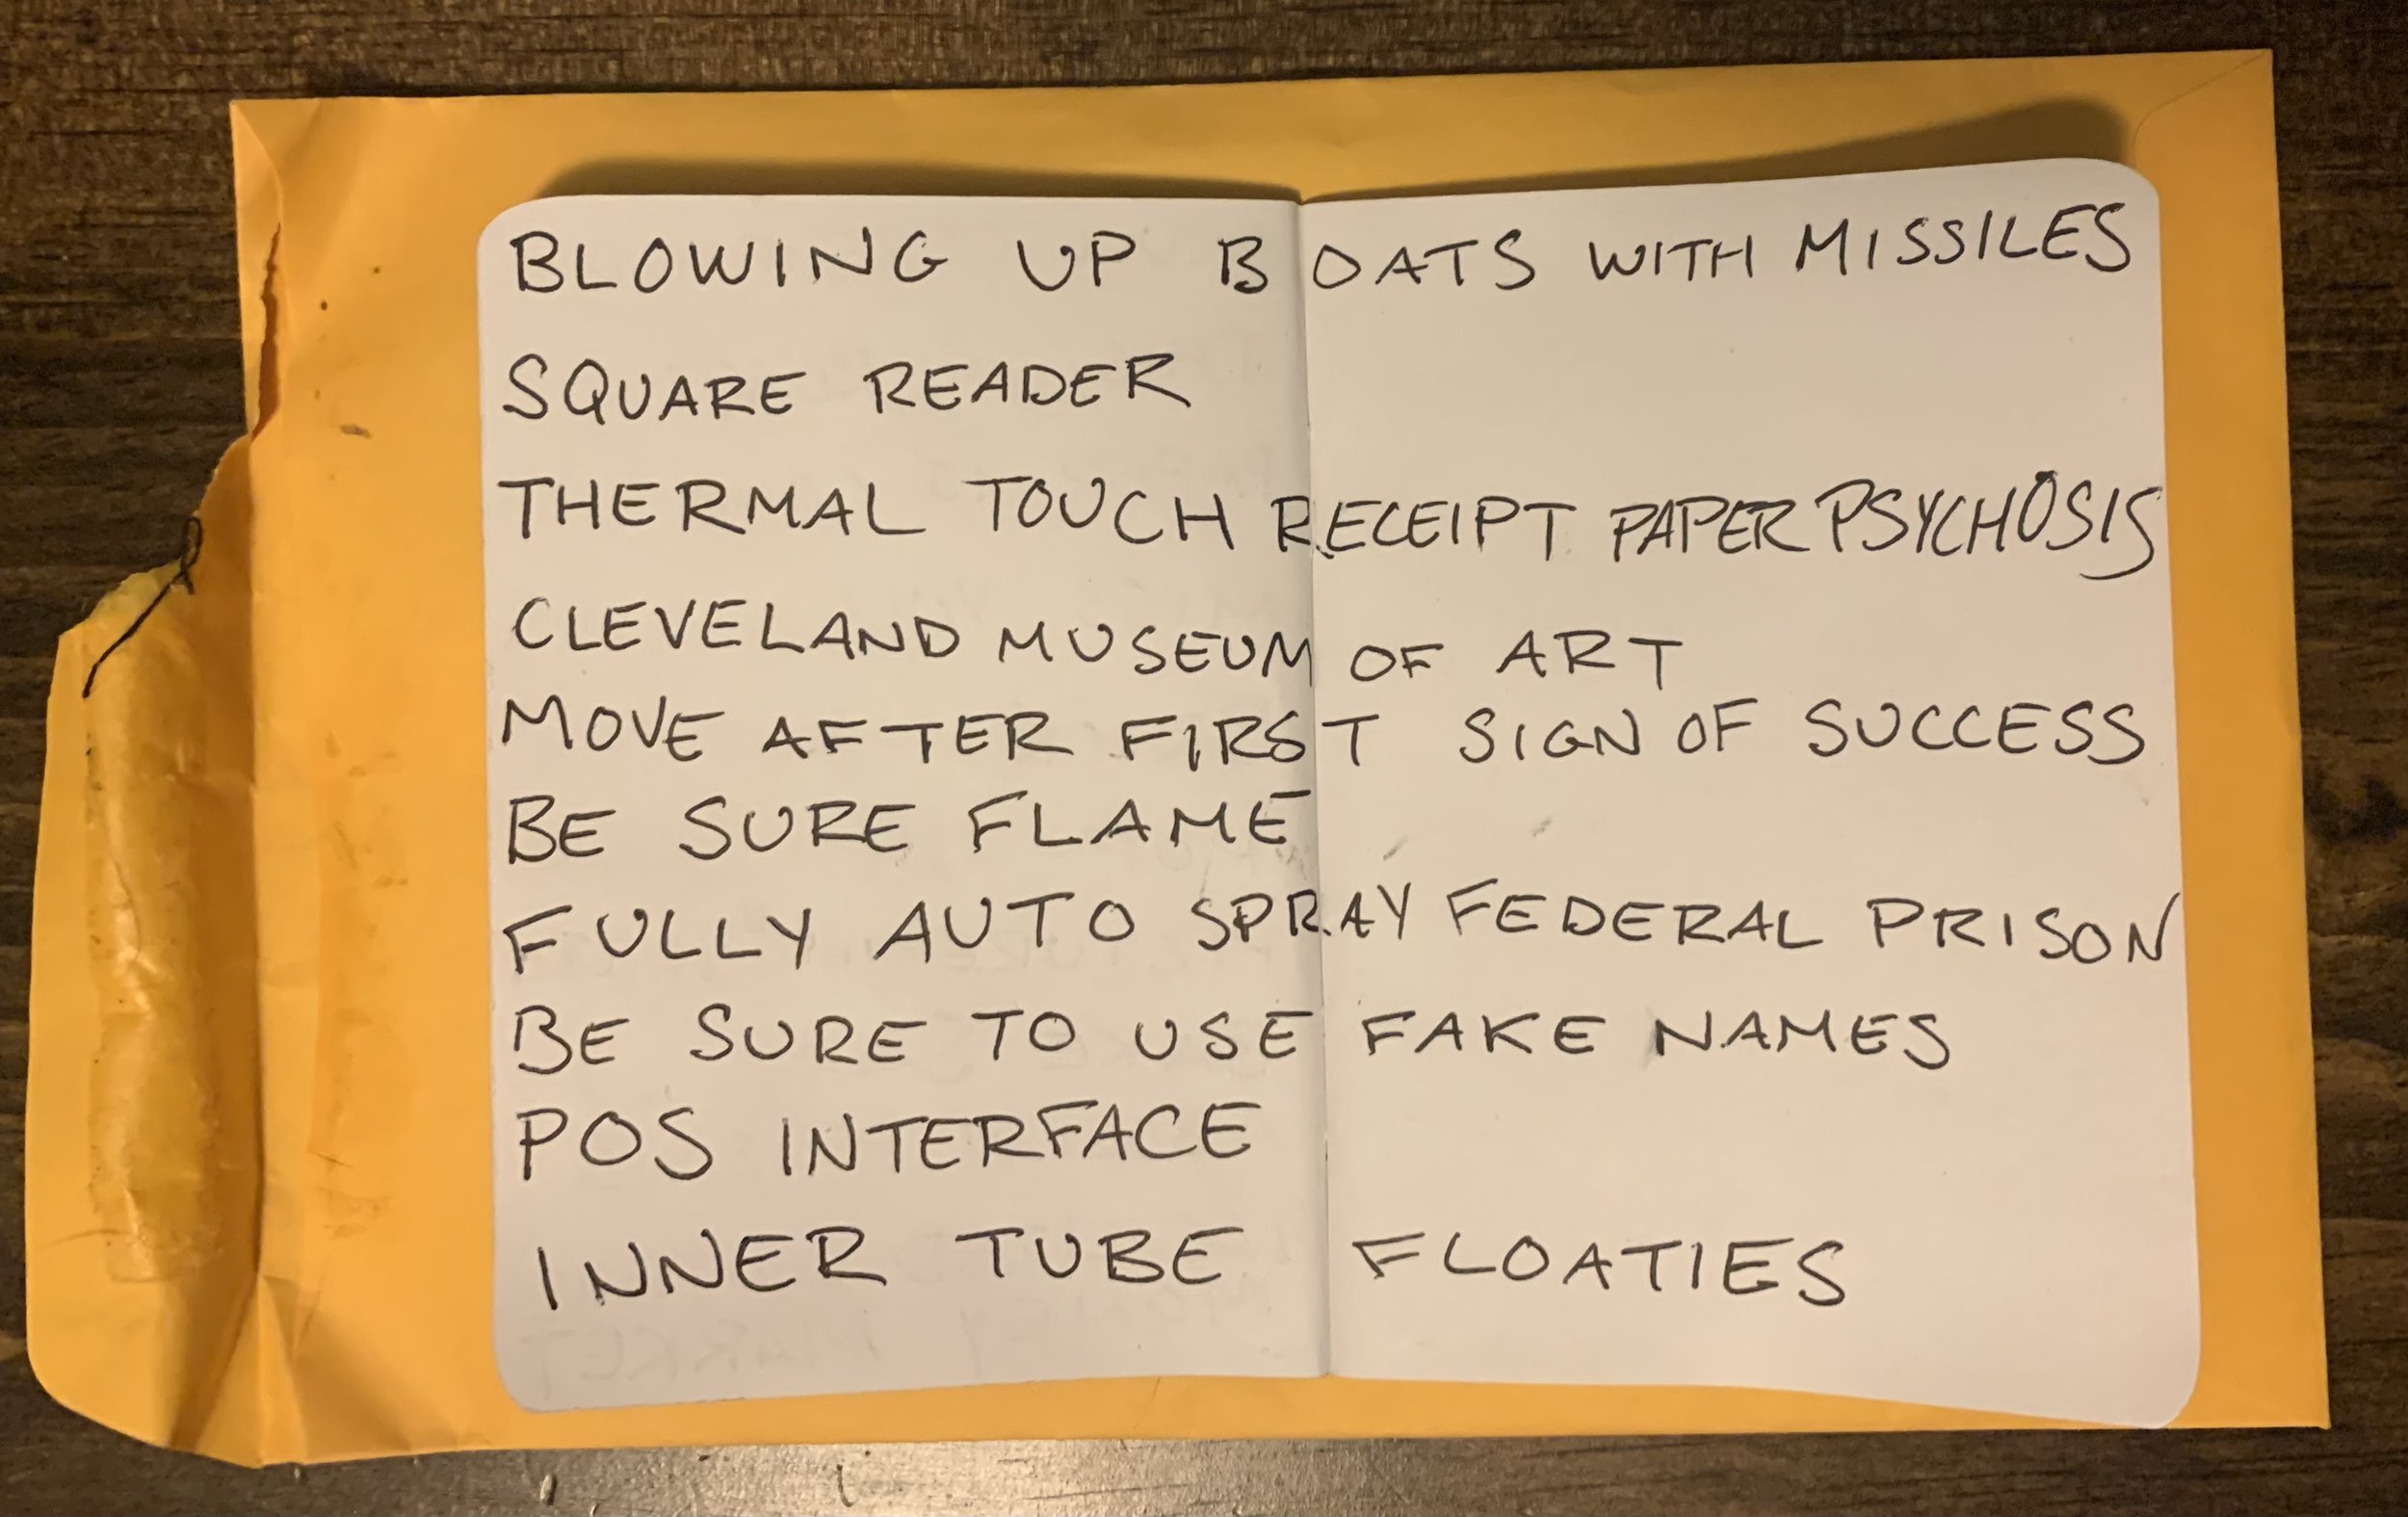 BLOWING UP BOATS WITH MISSILES
SQUARE READER
THERMAL TOUCH RECEIPT PAPER PSYCHOSIS
CLEVELAND MUSEUM OF ART
MOVE AFTER FIRST SIGN OF SUCCESS
BE SURE FLAME
FULLY AUTO SPRAY FEDERAL PRISON
BE SURE TO USE FAKE NAMES
POS INTERFACE
INNER TUBE FLOATIES